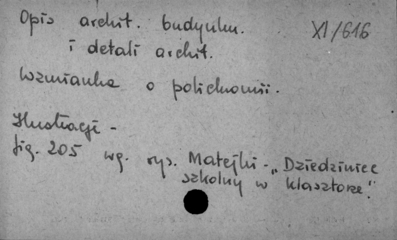 Opis archit. budynku.
XI/616
i detali archit.
Wzmianka o polichromii.
Ilustracje -
fig. 205 wg. rys. Matejki - „Dziedziniec
szkolny w klasztorze".